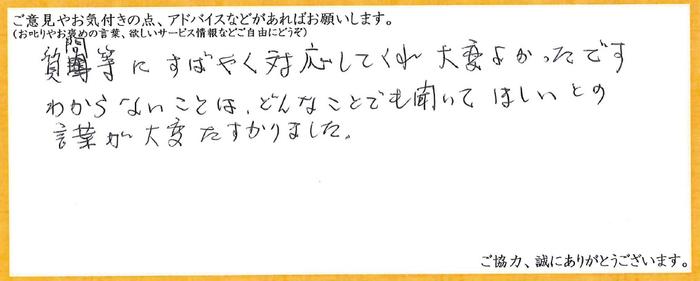 ご意見やお気付きの点、アドバイスなどがあればお願いします。
(お叱りやお褒めの言葉、欲しいサービス情報などご自由にどうぞ)
質問等にすばやく対応してくれ大変よかったです
わからないことは、どんなことでも聞いてほしいとの
言葉が大変たすかりました。
ご協力、誠にありがとうございます。